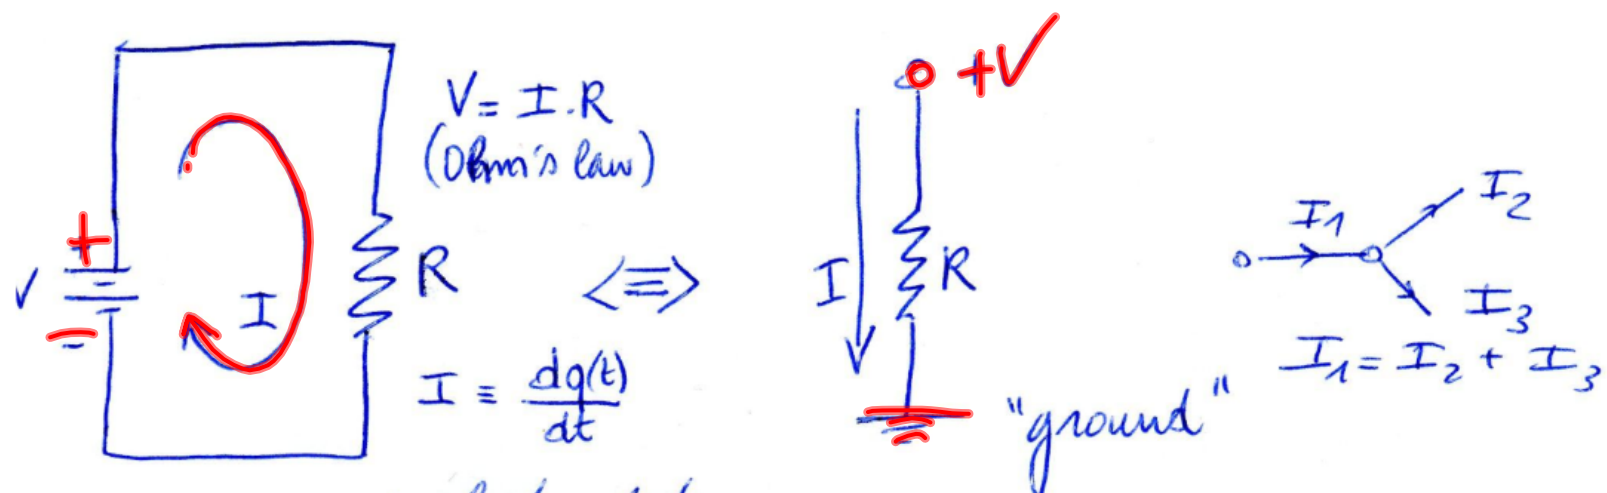 V = I.R
(Ohm's law)
+
V
-
I
R
I ≡ dq(t)/dt
<=>
+V
I
R
"ground"
I1
I2
I3
I1 = I2 + I3